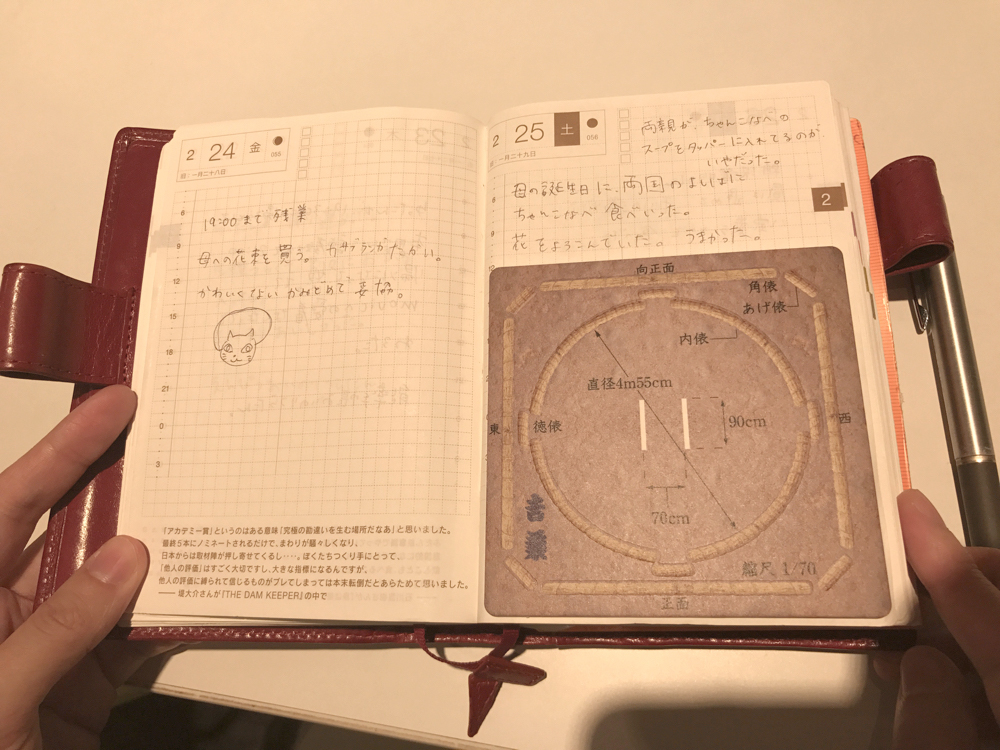 2 24 金
055
旧:一月二十八日
6
9
12
15
18
21
0
3
19:00まで 残業
母への花束を買う。カサブランカたかい。
かわいくない かみどめで 妥協。
「アカデミー賞」というのはある意味「究極の勘違いを生む場所だなあ」と思いました。
最終5本にノミネートされるだけで、まわりが騒々しくなり、
日本からは取材陣が押し寄せてくるし‥‥。ぼくたちつくり手にとって、
「他人の評価」はすごく大切ですし、大きな指標になるんですが、
他人の評価に縛られて信じるものがブレてしまっては本末転倒だとあらためて思いました。
—— 堤大介さんが『THE DAM KEEPER』の中で
2 25 土
056
旧:一月二十九日
両親が、ちゃんこなべの
スープをタッパーに入れてるのが、
いやだった。
2
母の誕生日に、両国のよしばに
ちゃんこなべ 食べいった。
花をよろこんでいた。 うまかった。
向正面
角俵
あげ俵
内俵
直径4m55cm
90cm
東
徳俵
西
70cm
吉葉
縮尺 1/70
正面